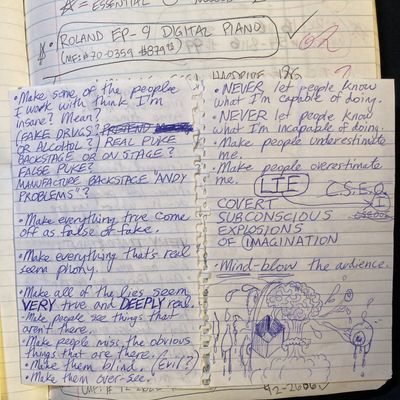 = ESSENTIAL
• ROLAND EP-9 DIGITAL PIANO
(MF:#70-0359 $879⁹⁹)
• Make some of the people
I work with think I'm
insane? Mean?
(FAKE DRUGS? PRETEND
OR ALCOHOL?) REAL PUKE
BACKSTAGE OR ON STAGE?
FALSE PUKE?
MANUFACTURE BACKSTAGE "ANDY
PROBLEMS"?
• Make everything true come
off as false or fake.
• Make everything that's real
seem phony.
• Make all of the lies seem
VERY true and DEEPLY real.
• Make people see things that
aren't there.
• Make people miss the obvious
things that are there.
• Make them blind. (Evil?)
• Make them over-see.
• NEVER let people know
what I'm capable of doing.
• NEVER let people know
what I'm incapable of doing.
• Make people underestimate
me.
• Make people overestimate
me.
LIE
C.S.E.O.
I
COVERT
SUBCONSCIOUS
EXPLOSIONS
OF IMAGINATION
• Mind-blow the audience.